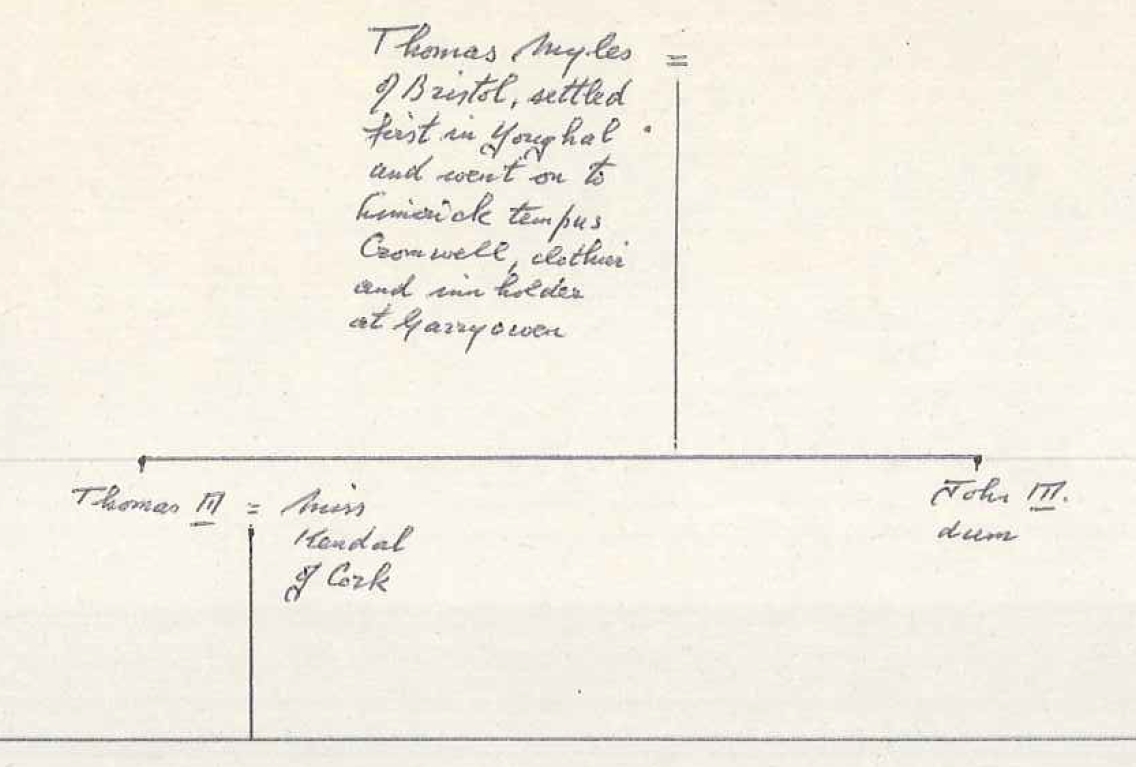 Thomas Myles =
of Bristol, settled
first in Youghal
and went on to
Limerick tempus
Cromwell, clothier
and inn holder
at Garryowen
Thomas III = Miss
Kendal
of Cork
John III.
dum